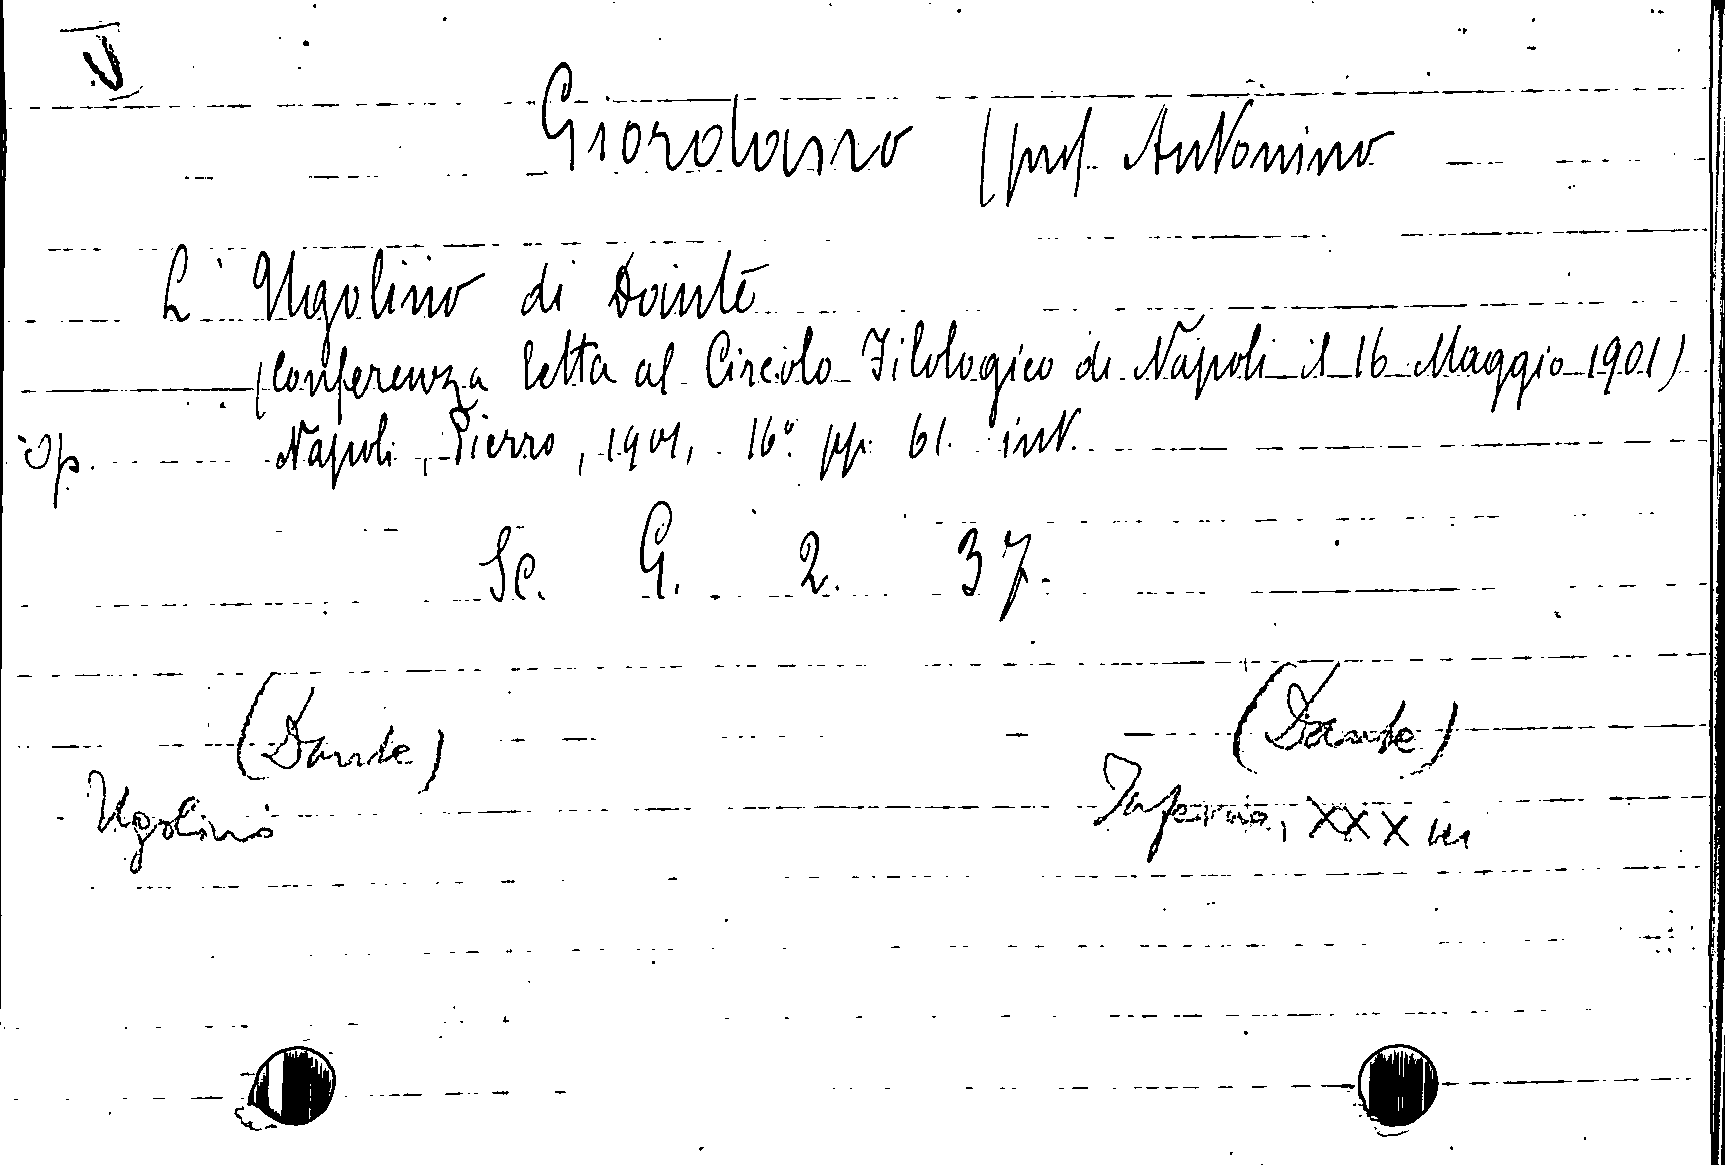 V
Giordano (prof. Antonino
L'Ugolino di Dante
(Conferenza letta al Circolo Filologico di Napoli il 16 Maggio 1901)
Op. Napoli, Pierro, 1901, 16° pp. 61. int.
Sc. G. 2. 37.
(Dante) (Dante)
Ugolino Inferno, XXXIII